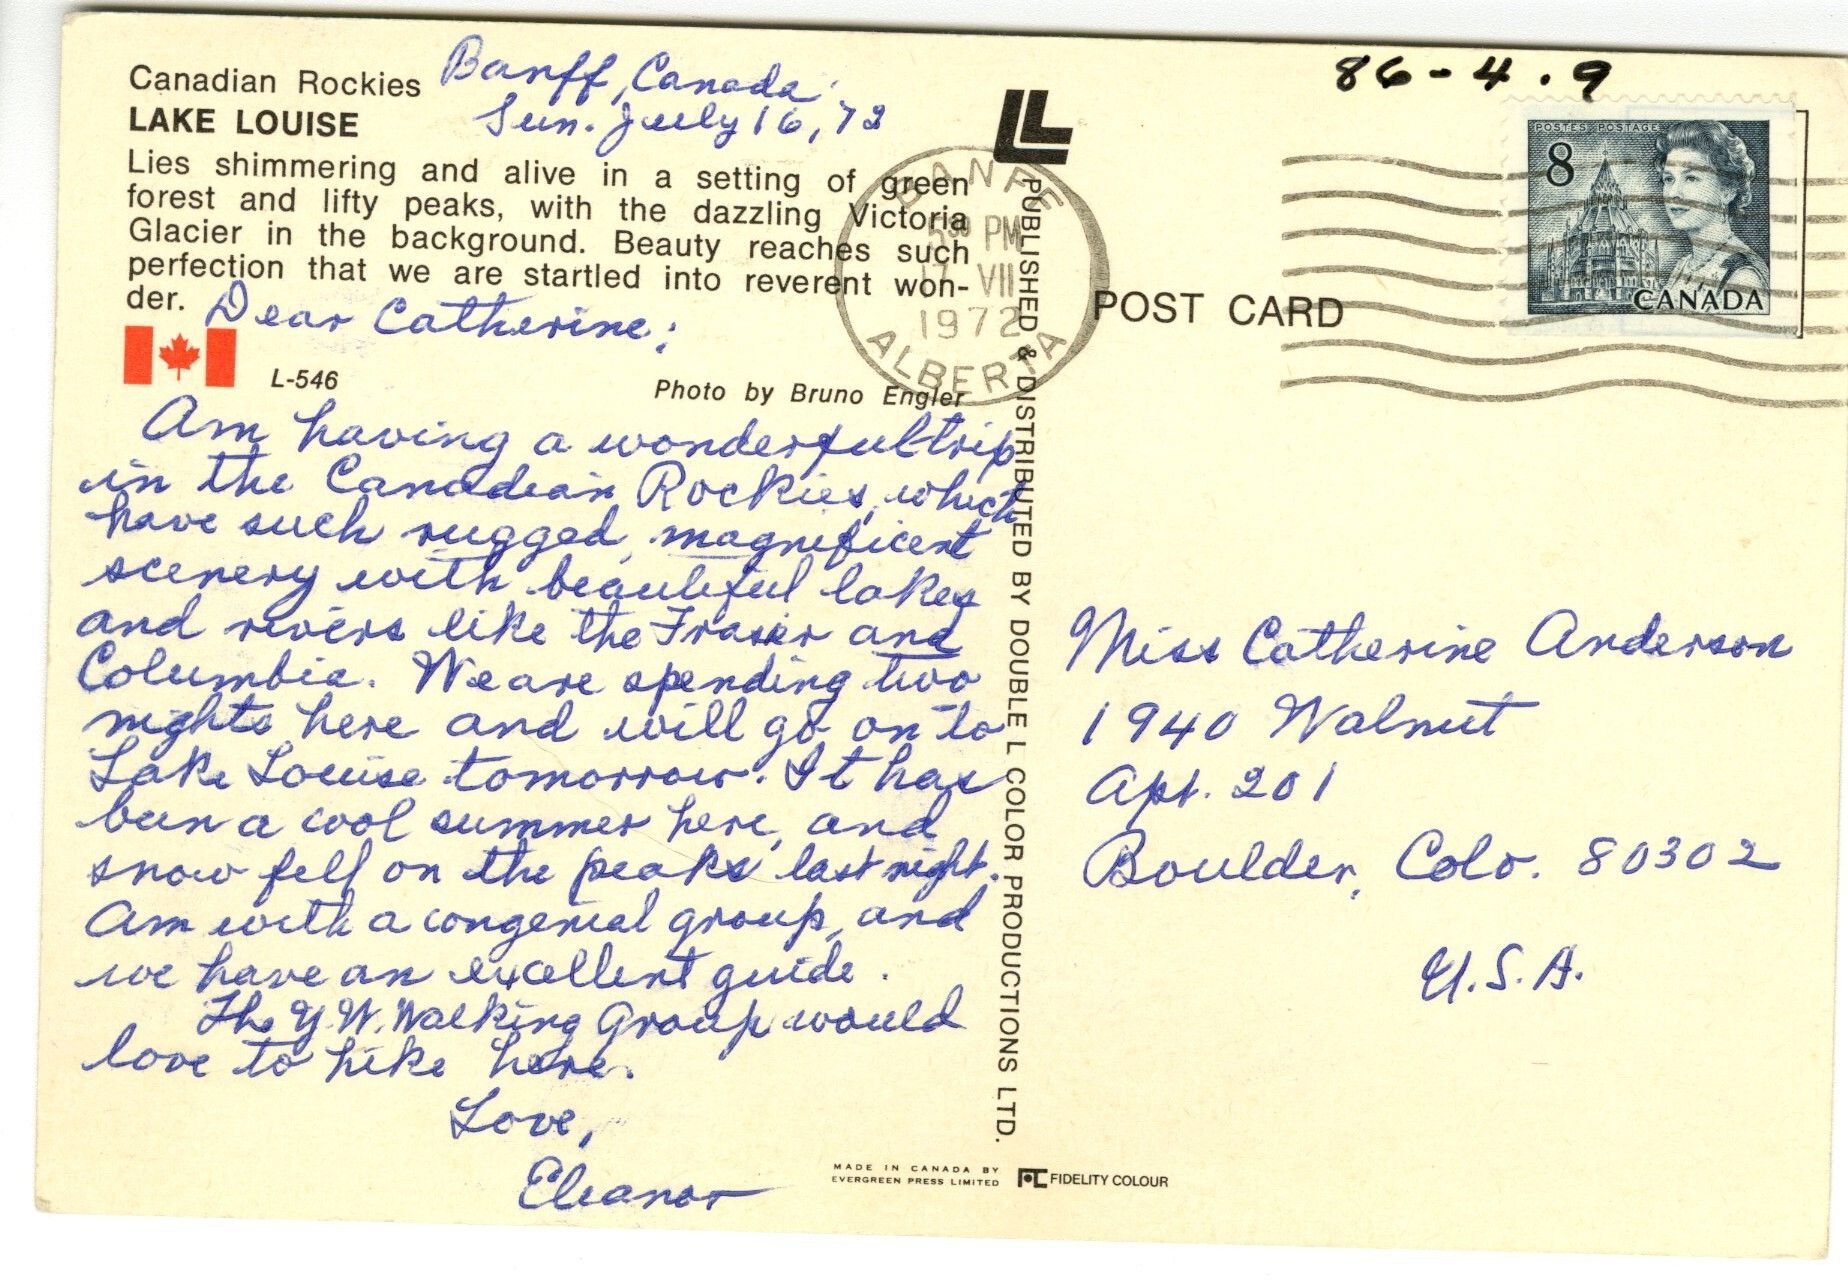 Canadian Rockies
LAKE LOUISE
Banff, Canada
Sun. July 16, 72
Lies shimmering and alive in a setting of green
forest and lifty peaks, with the dazzling Victoria
Glacier in the background. Beauty reaches such
perfection that we are startled into reverent won-
der.
Dear Catherine:
L-546
Photo by Bruno Engler
Am having a wonderful trip
in the Canadian Rockies, which
have such rugged, magnificent
scenery with beautiful lakes
and rivers like the Fraser and
Columbia. We are spending two
nights here and will go on to
Lake Louise tomorrow. It has
been a cool summer here, and
snow fell on the peaks last night.
Am with a congenial group, and
we have an excellent guide.
The Y.W. Walking Group would
love to hike here.
Love,
Eleanor
BANFF
5 30 PM
17 VII
1972
ALBERTA
LL
PUBLISHED & DISTRIBUTED BY DOUBLE L COLOR PRODUCTIONS LTD.
MADE IN CANADA BY
EVERGREEN PRESS LIMITED
FIDELITY COLOUR
86-4.9
POSTES POSTAGE
8
CANADA
POST CARD
Miss Catherine Anderson
1940 Walnut
Apt. 201
Boulder, Colo. 80302
U.S.A.